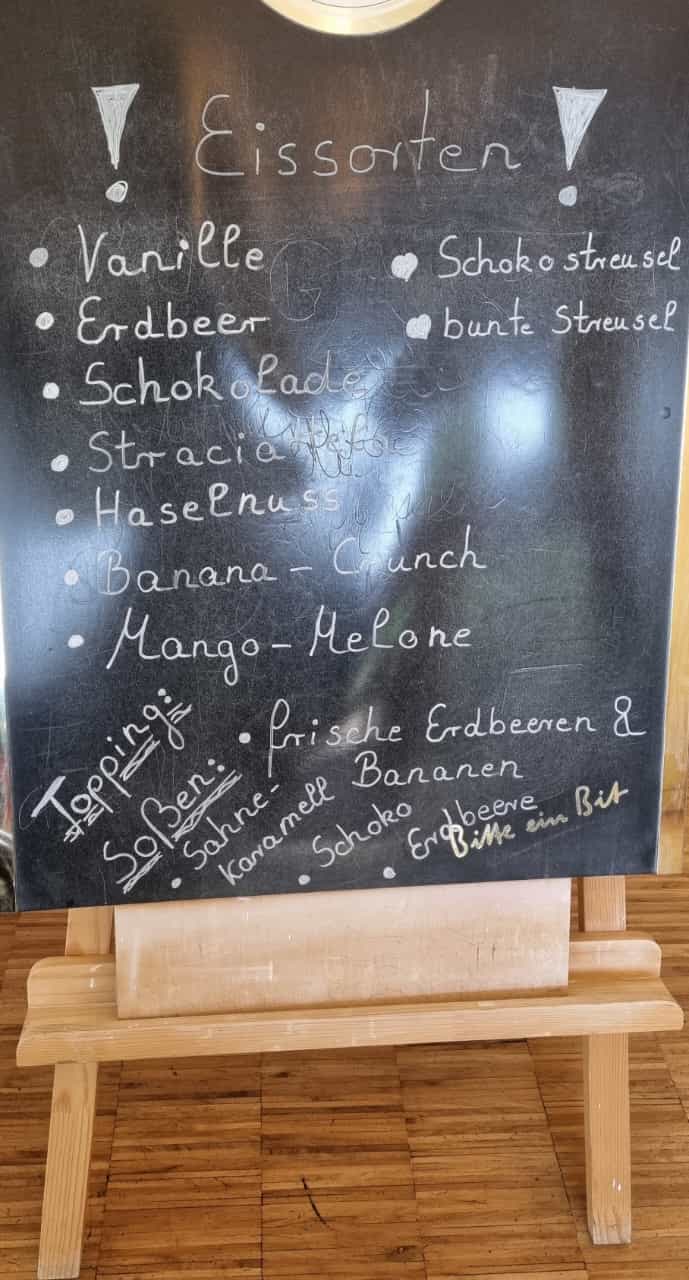 ! Eissorten !
• Vanille
• Erdbeer
• Schokolade
• Straciatella
• Haselnuss
• Banana - Crunch
• Mango - Melone
• Schokostreusel
• bunte Streusel
Topping:
• frische Erdbeeren &
Bananen
Soßen:
• Sahne-
Karamell
• Schoko
• Erdbeere
Bitte ein Bit